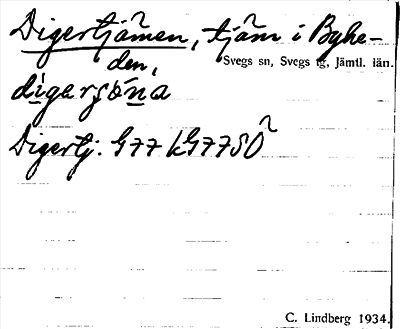 Digertjärnen, tjärn i Byhe-
den,
Svegs sn, Svegs tg, Jämtl. län.
digersöna
Digertj: G77 KG77SO
C. Lindberg 1934.